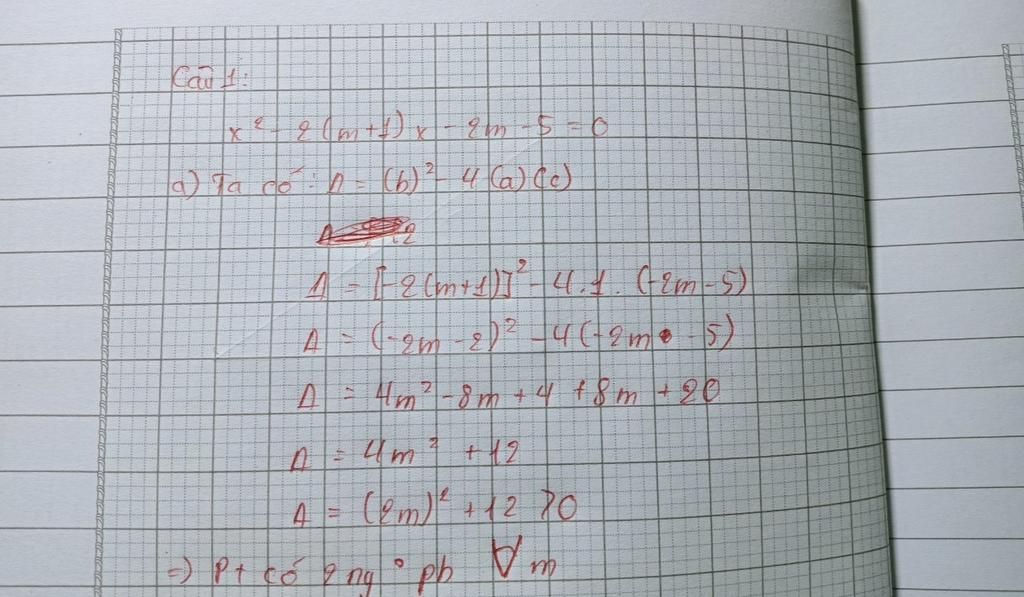 Câu 1:
x² - 2(m+1)x - 2m - 5 = 0
a) Ta có: Δ = (b)² - 4(a)(c)
Δ = [-2(m+1)]² - 4.1.(-2m-5)
Δ = (-2m-2)² - 4(-2m - 5)
Δ = 4m² - 8m + 4 + 8m + 20
Δ = 4m² + 12
Δ = (2m)² + 12 > 0
=> Pt có 2 ng° pb ∀m